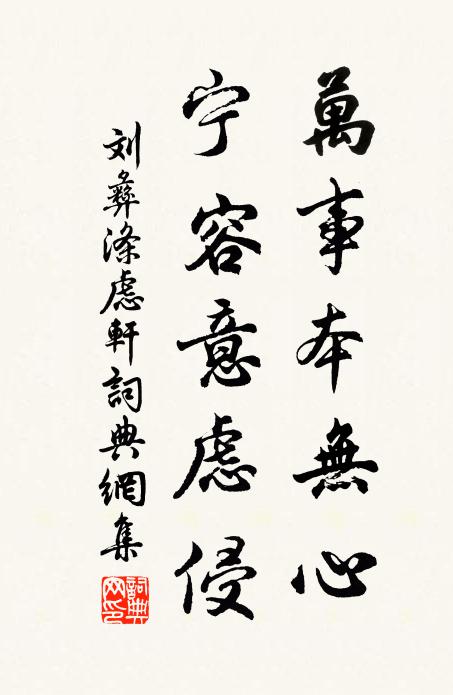 萬事本無心
宁容意虑侵
刘彝涤虑軒詞典網集
詞典网印